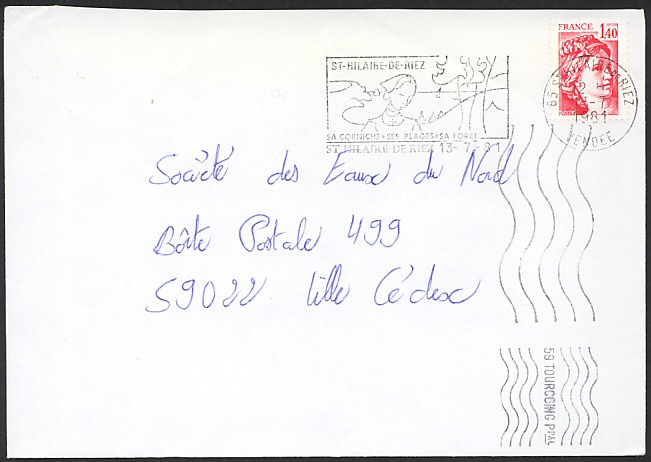 FRANCE 1,40
POSTES
ST-HILAIRE-DE-RIEZ
SA CORNICHE * SES PLAGES * SA FORET
ST HILAIRE DE RIEZ 13-7-81
1981
VENDEE
Société des Eaux du Nord
Boîte Postale 499
59022 Lille Cédex
59 TOURCOING PPAL